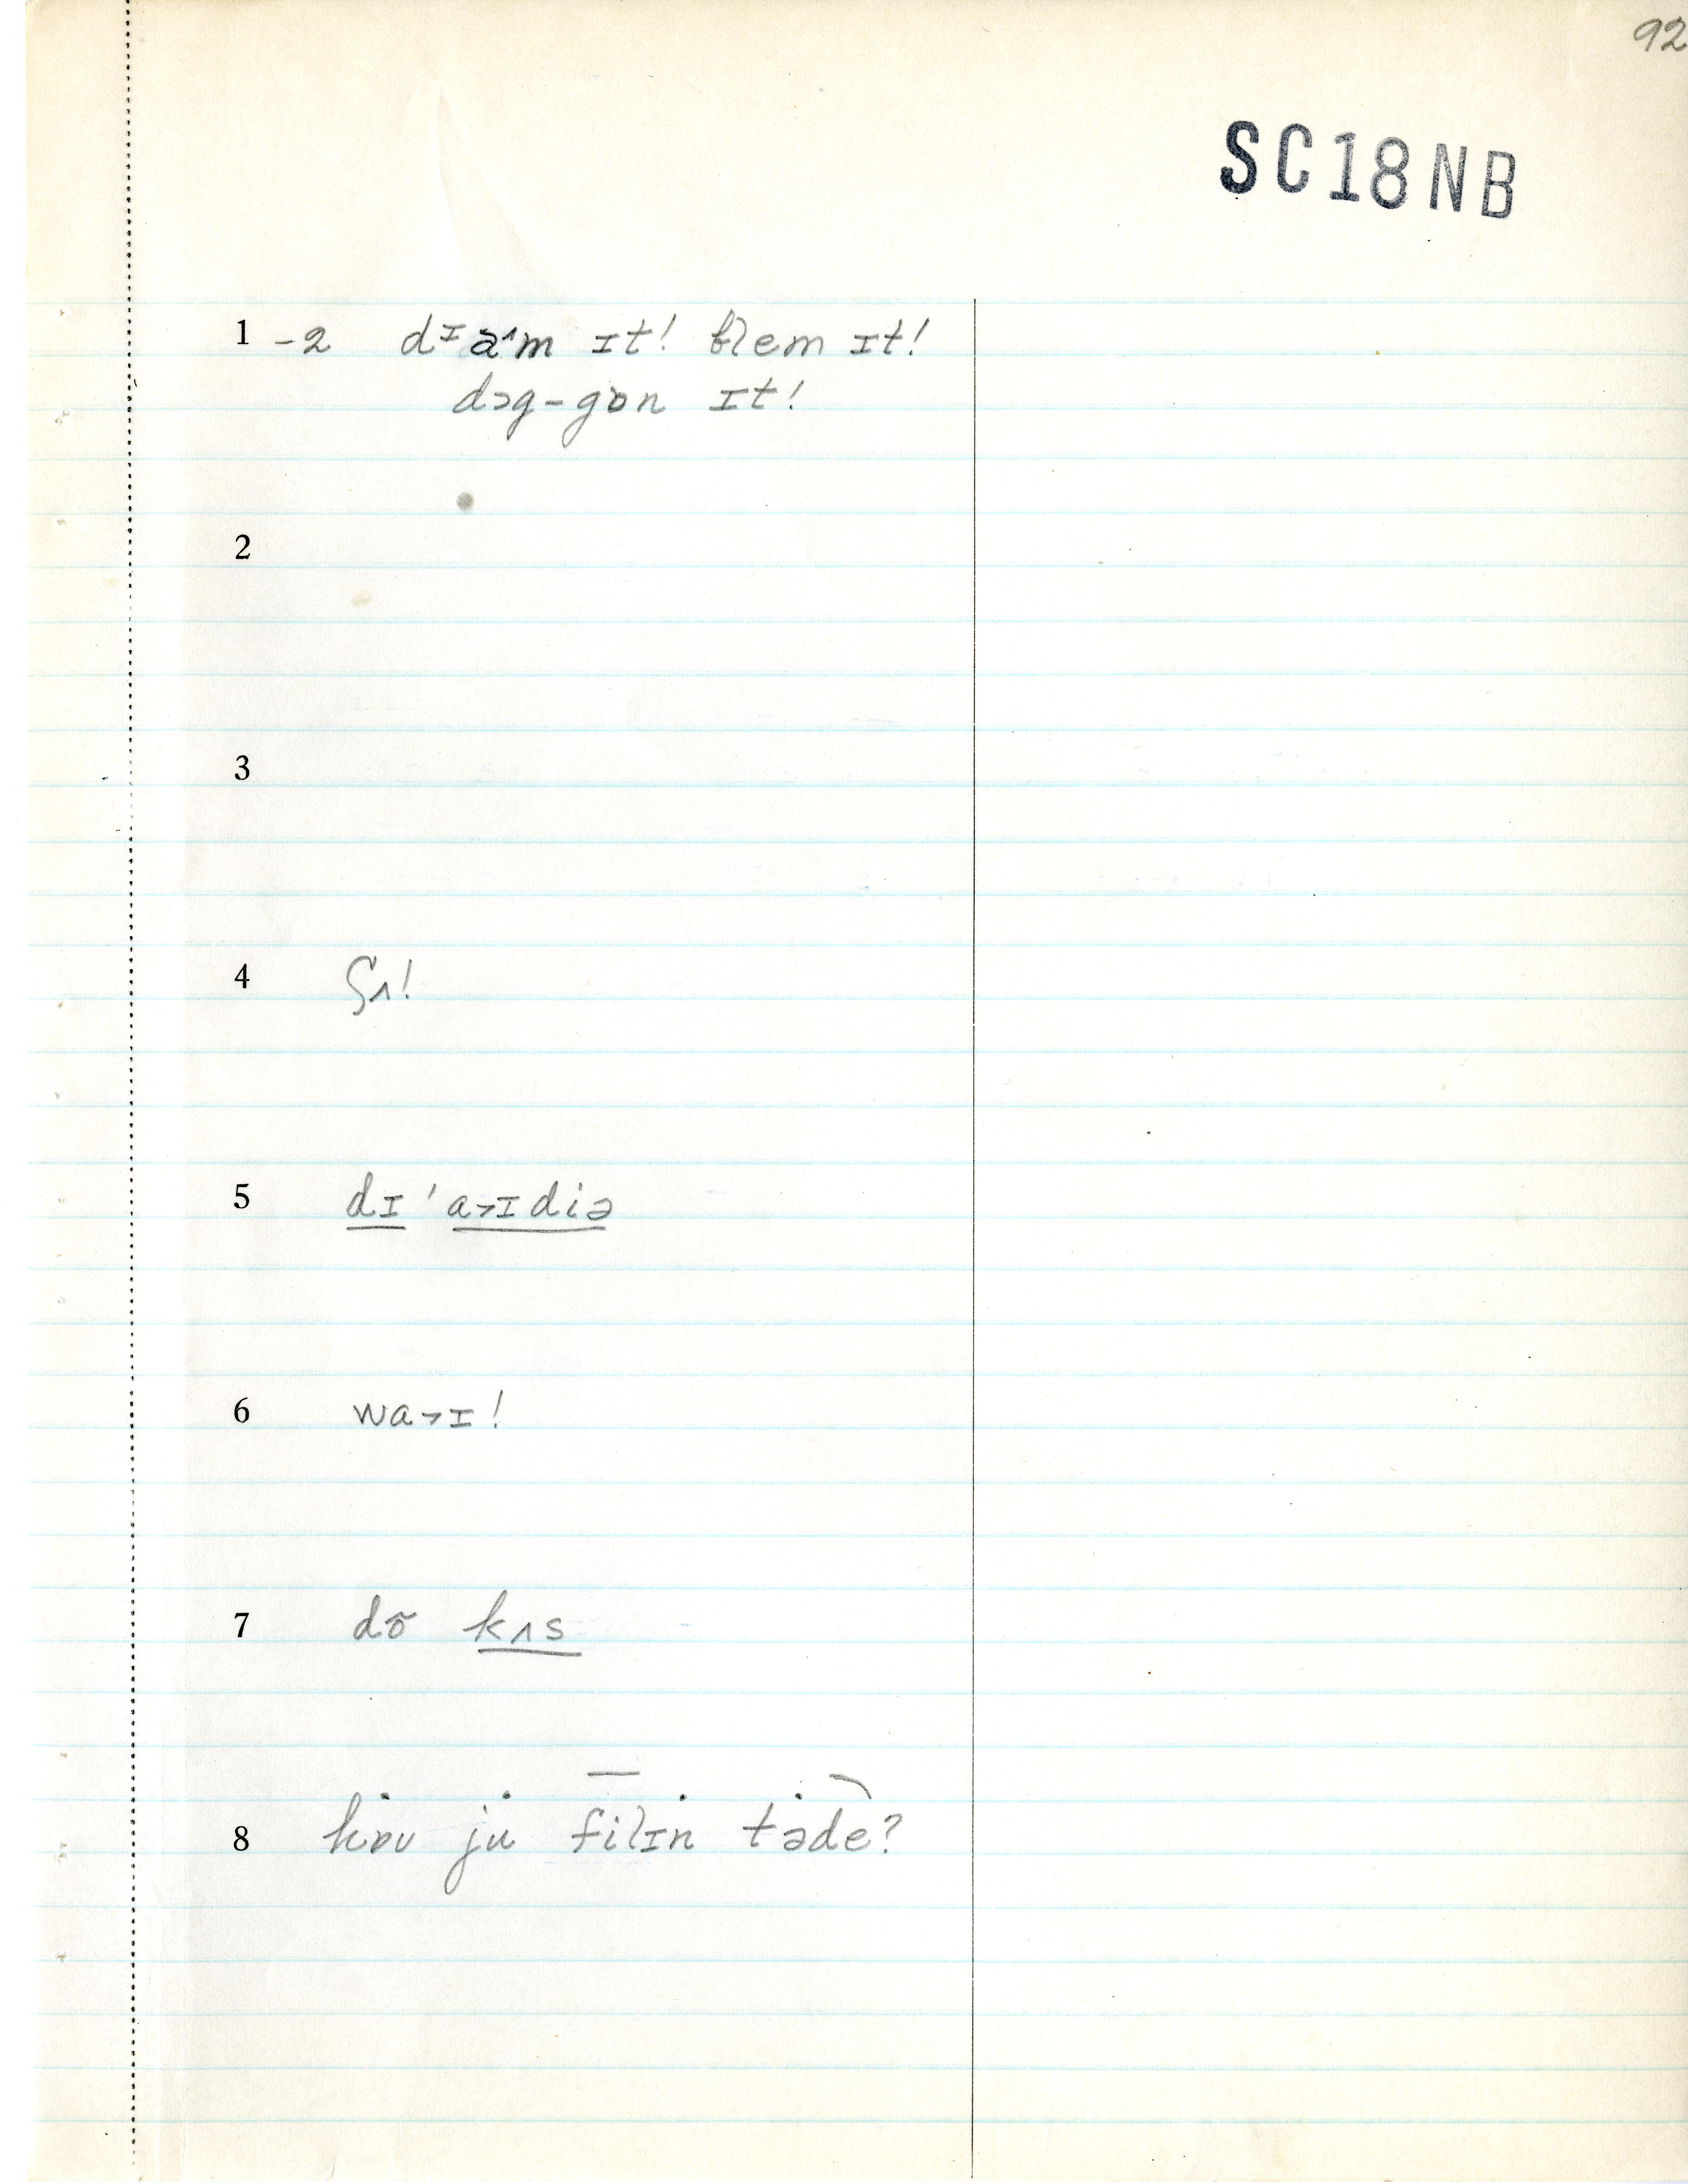 92
SC18NB
1 -2 dᶦa˄m ɪt! blem ɪt!
dɔg-gɒn ɪt!
2
3
4 ʃʌ!
5 dɪ 'a˃ɪdiə
6 wa˃ɪ!
7 dõ kʌs
8 hɒu ju filɪn təde?